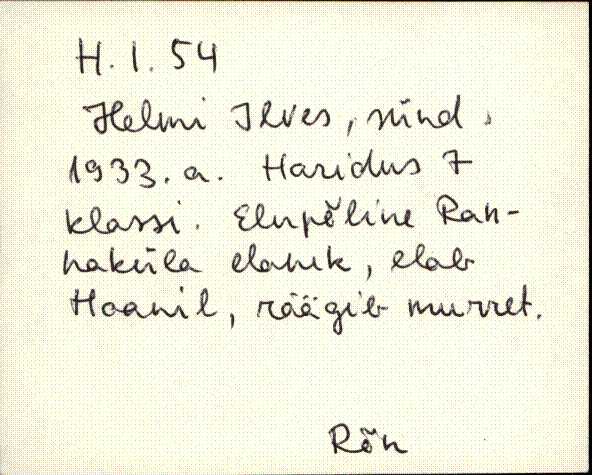 H. I. 54
Helmi Ilves, sünd.
1933. a. Haridus 7
klassi. Elupõline Ran-
naküla elanik, elab
Haanil, räägib murret.
Rõn